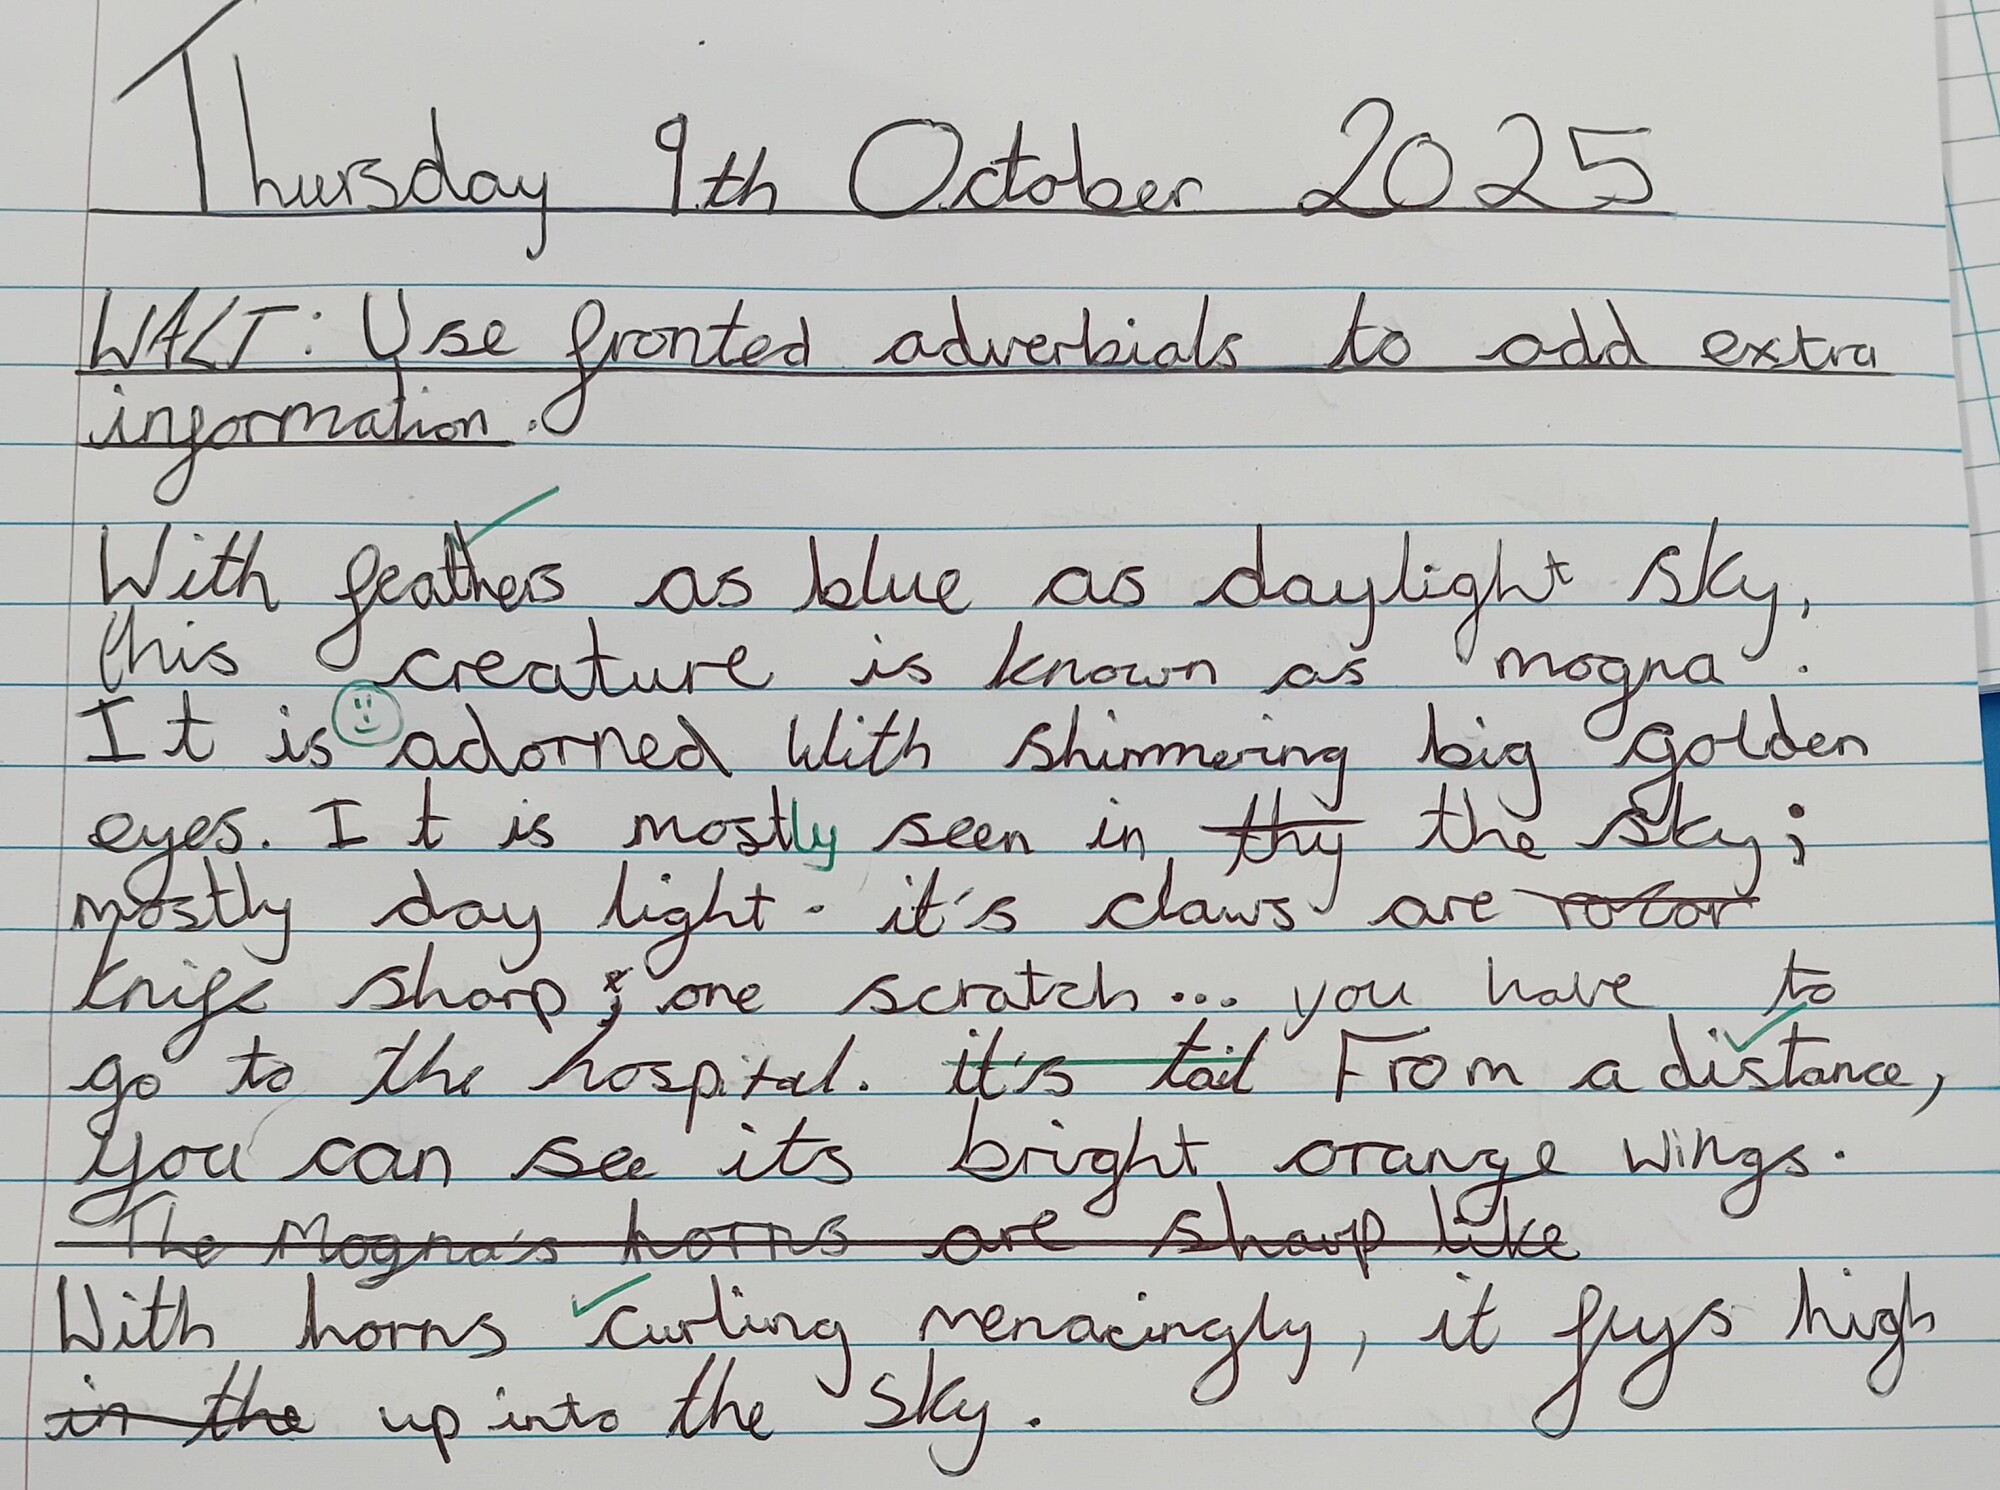 Thursday 9th October 2025
WALT: Use fronted adverbials to add extra
information.
With feathers as blue as daylight sky,
this creature is known as 'mogna'.
It is adorned with shimmering big golden
eyes. It is mostly seen in thy the sky;
mostly day light. it's claws are
knife sharp; one scratch... you have to
go to the hospital. it's tail From a distance,
you can see its bright orange wings.
The Mogna's horns are sharp like
With horns curling menacingly, it flys high
in the up into the sky.